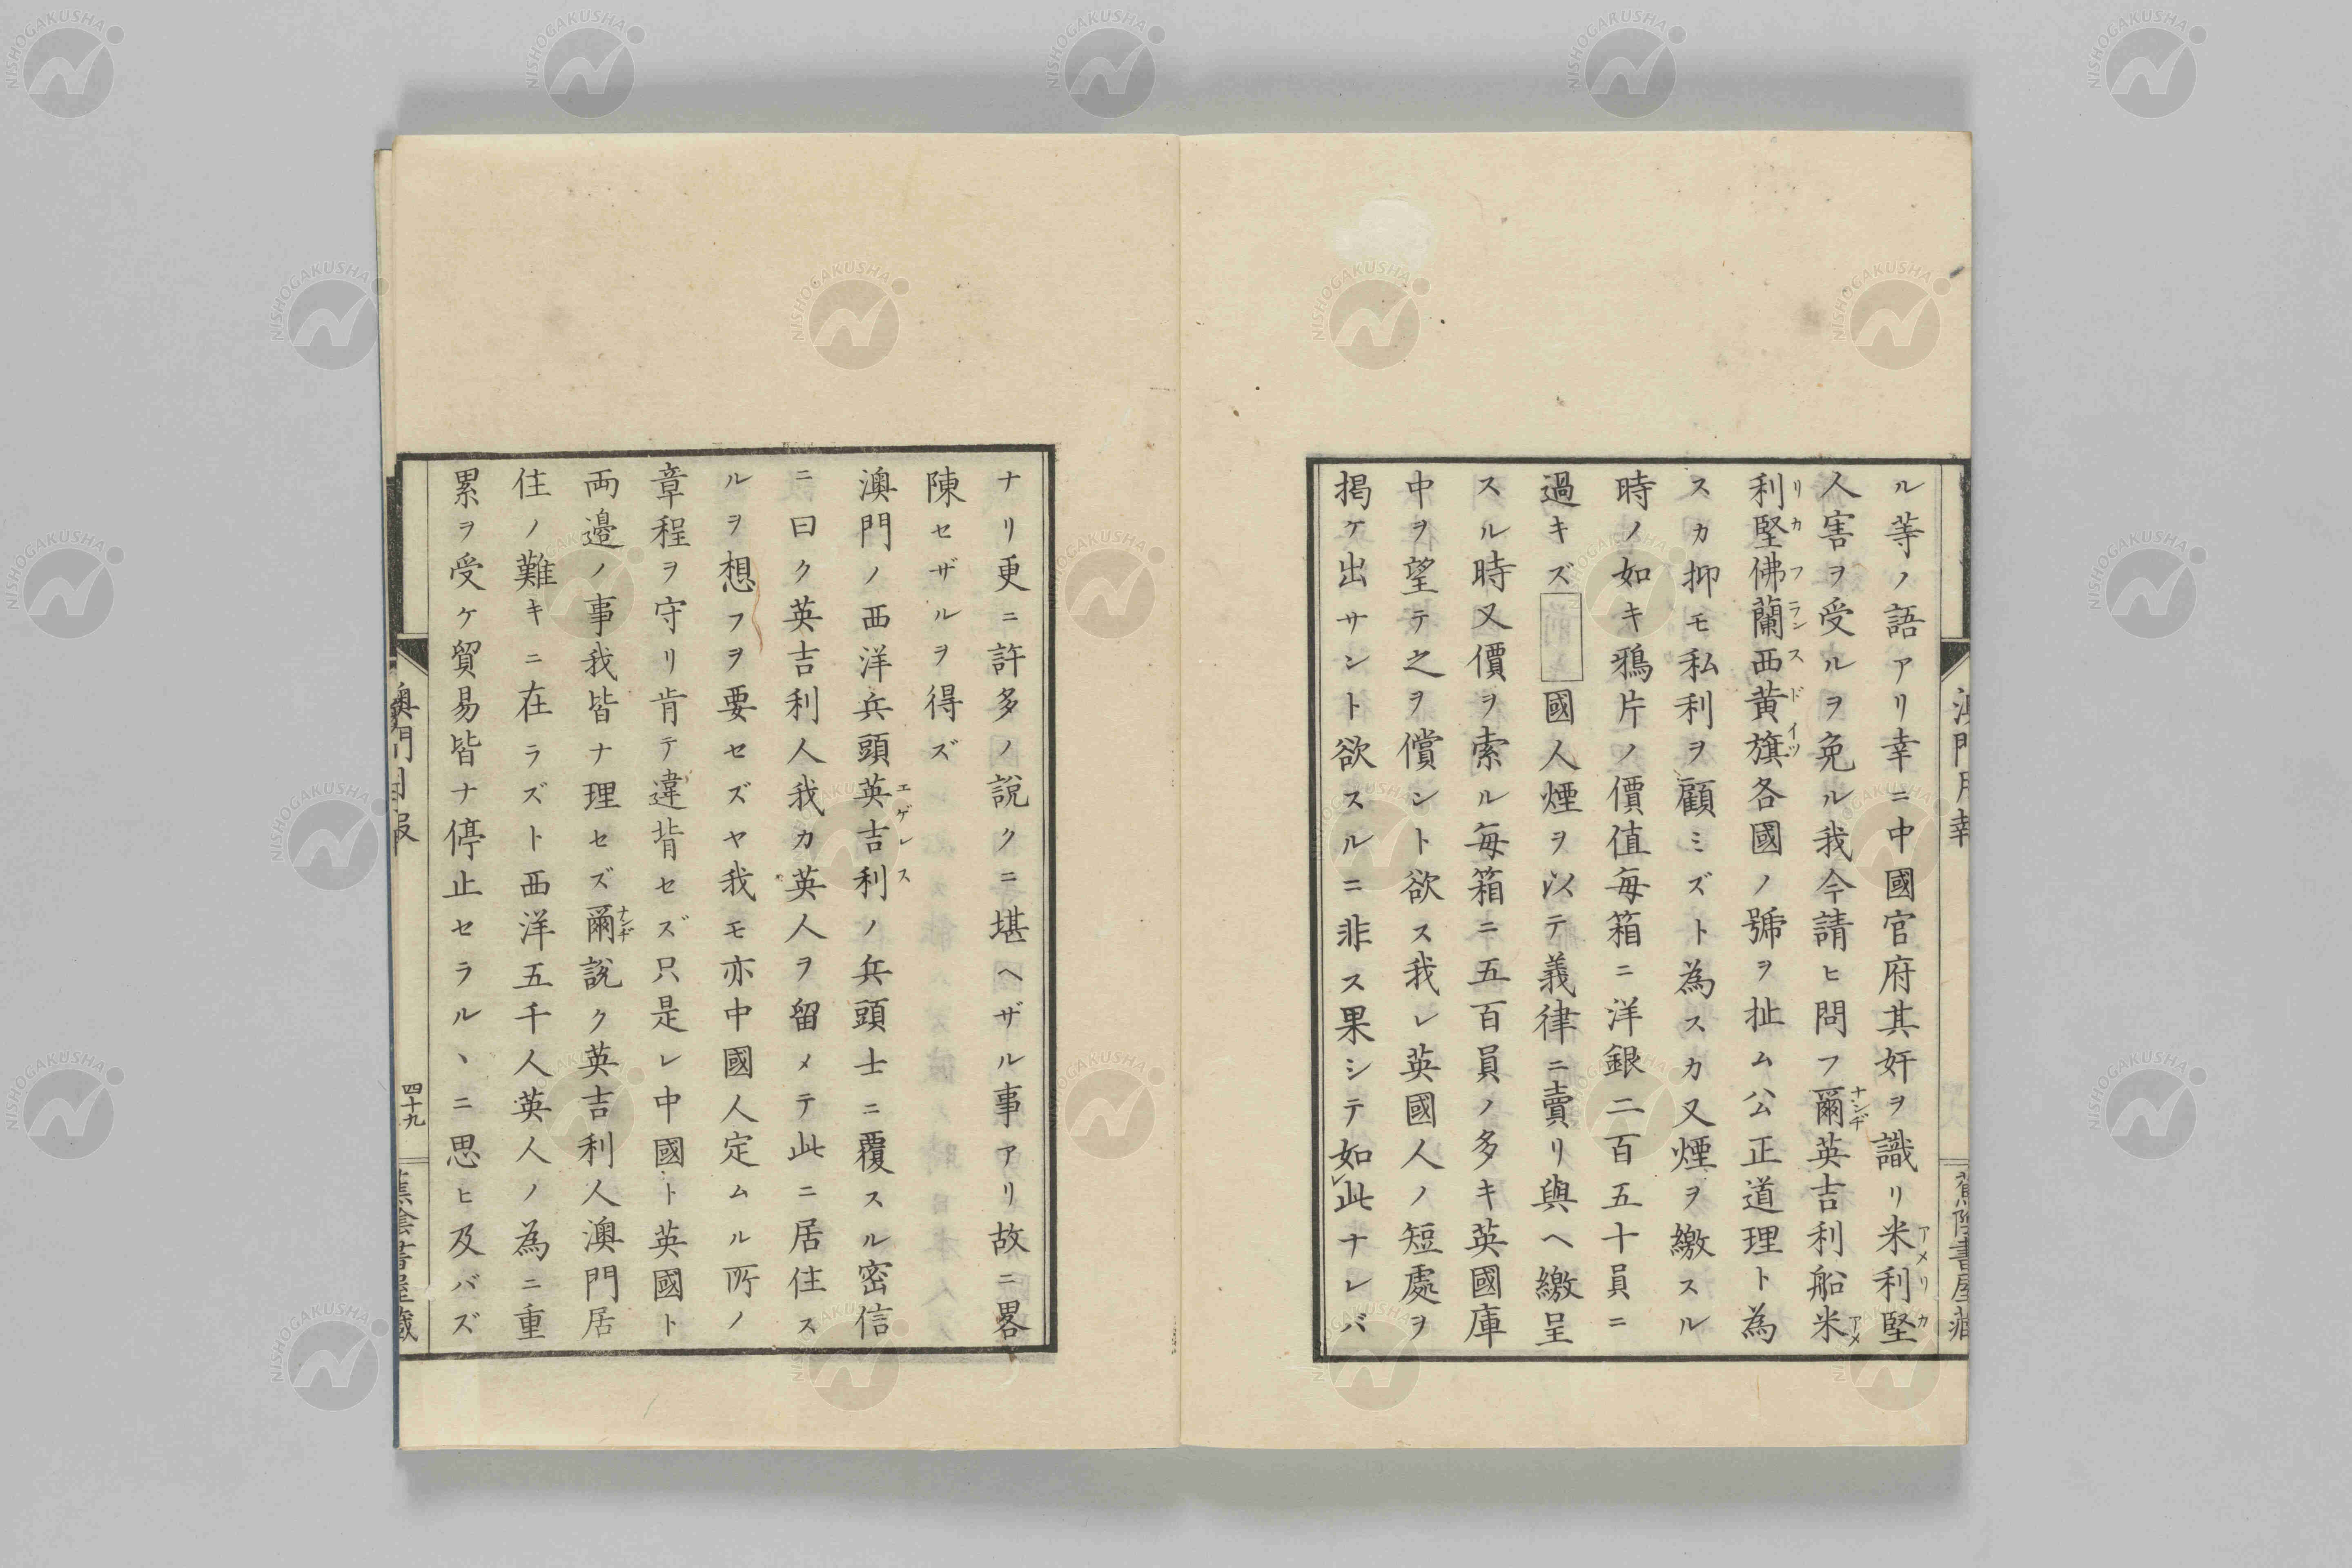 ル等ノ語アリ幸ニ中國官府其奸ヲ識リ米利堅
人害ヲ受ルヲ免ル我今請ヒ問フ爾英吉利船米
利堅佛蘭西黄旗各國ノ號ヲ扯ム公ム正道理ト為
スカ抑モ私利ヲ顧ミズト為スカ又煙ヲ繳スル
時ノ如キ鴉片ノ價值毎箱ニ洋銀二百五十員ニ
過キズ國人煙ヲ以テ義律ニ賣リ與ヘ繳呈
スル時又價ヲ索ル毎箱ニ五百員ノ多キ英國庫
中ヲ望テ之ヲ償ント欲ス我レ英國人ノ短處ヲ
掲ケ出サント欲スルニ非ス果シテ如此ナレバ
ナリ更ニ許多ノ說クニ堪ヘザル事アリ故ニ畧
陳セザルヲ得ズ
澳門ノ西洋兵頭英吉利ノ兵頭士ニ覆スル密信
ニ曰ク英吉利人我カ英人ヲ留メテ此ニ居住ス
ルヲ想フヲ要セズヤ我モ亦中國人定ムル所ノ
章程ヲ守リ肯テ違背セズ只是レ中國ト英國ト
両邉ノ事我皆ナ理セズ爾說ク英吉利人澳門居
住ノ難キニ在ラズト西洋五千人英人ノ為ニ重
累ヲ受ケ貿易皆ナ停止セラルヽニ思ヒ及バズ
澳門月報
四十九
蕉陰書屋藏
アメリカ
ナンヂ
アメ
リカフランスドイツ
エゲレス
ナンヂ
NISHOGAKUSHA